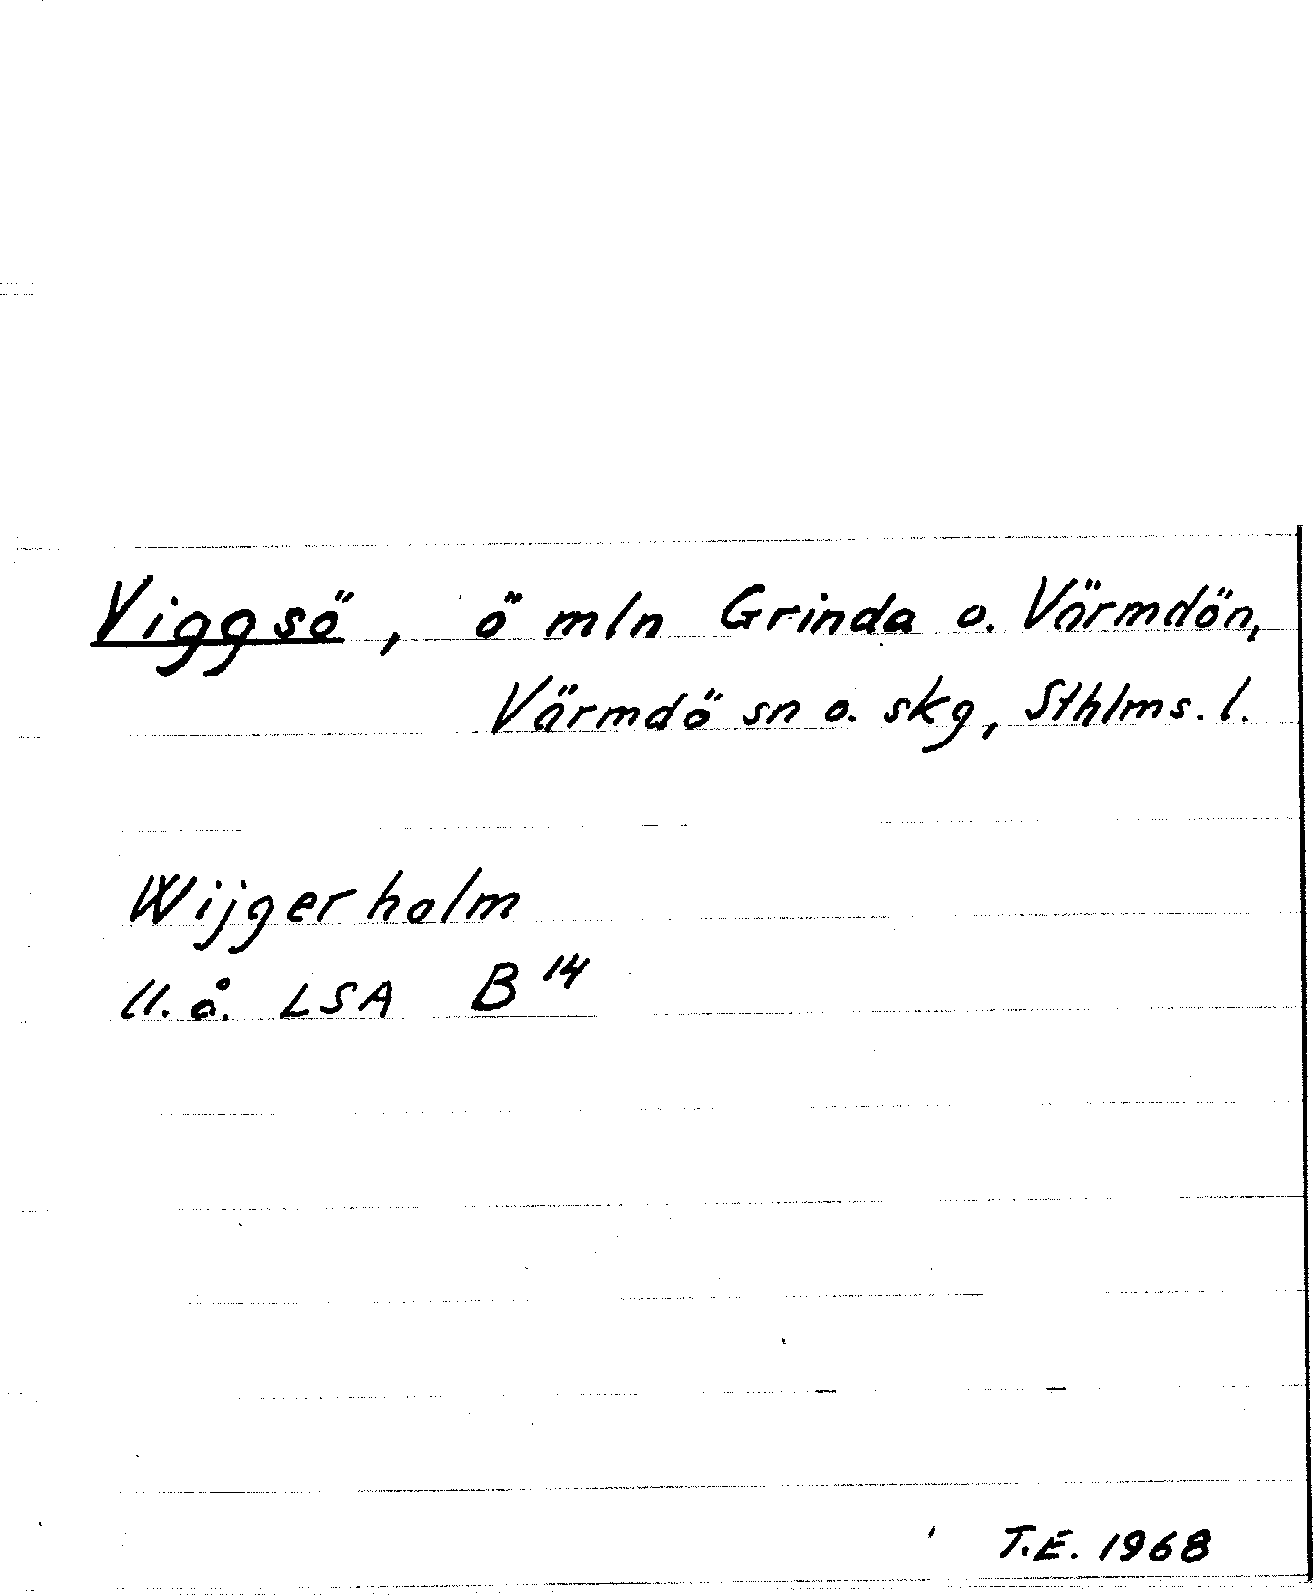 Viggsö, ö mln Grinda o. Värmdön,
Värmdö sn o. skg, Sthlms. l.
Wijgerholm
U. å. LSA B 14
T.E. 1968